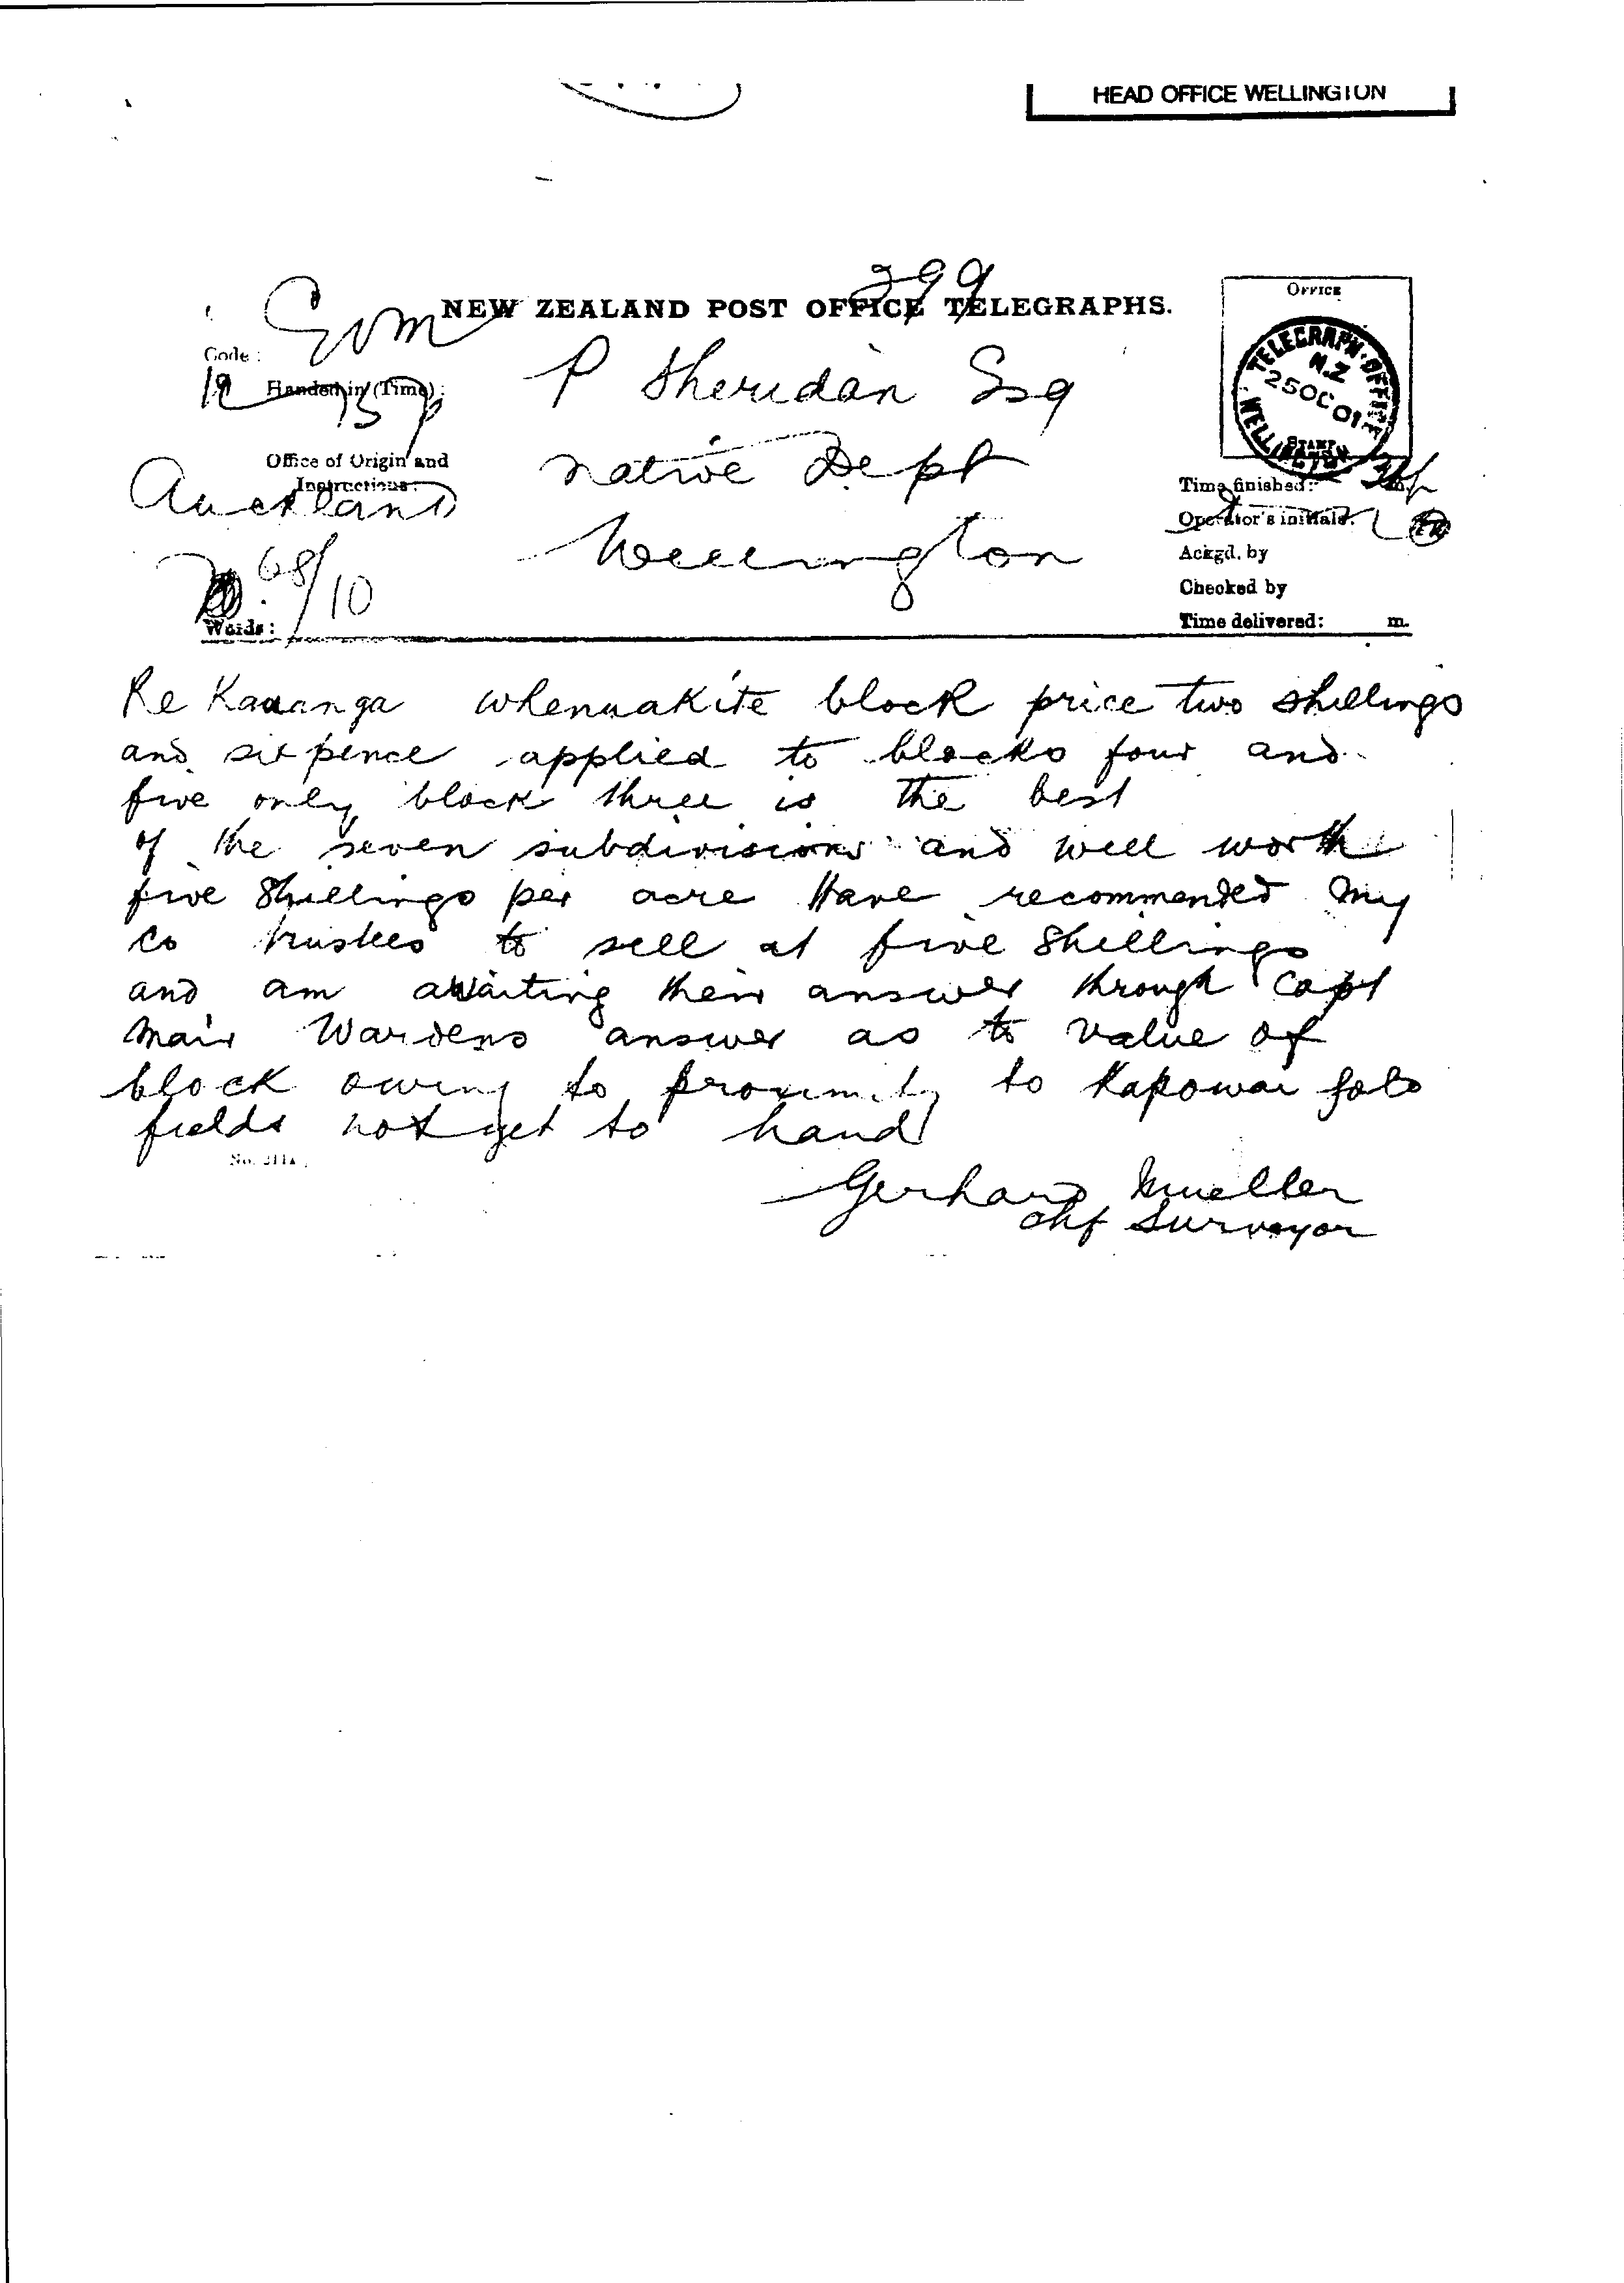 HEAD OFFICE WELLINGTON
299
NEW ZEALAND POST OFFICE TELEGRAPHS.
Code:
Handed in (Time):
Office of Origin and
Instructions:
Auckland
68/10
Words:
P Sheridan Esq
Native Dept
Wellington
OFFICE
TELEGRAPH OFFICE
N.Z
25 OC 01
WELLINGTON
STAMP
Time finished:
Operator's initials:
Ackgd. by
Checked by
Time delivered: m.
Re Kauanga whenuakite block price two shillings
and six pence applied to blocks four and
five only block three is the best
of the seven subdivisions and well worth
five Shillings per acre Have recommended my
co trustees to sell at five Shillings
and am awaiting their answer through Capt
Mair Wardens answer as to value of
block owing to proximity to Kapowai gold
fields not yet to hand
Gerhard Mueller
Chf Surveyor